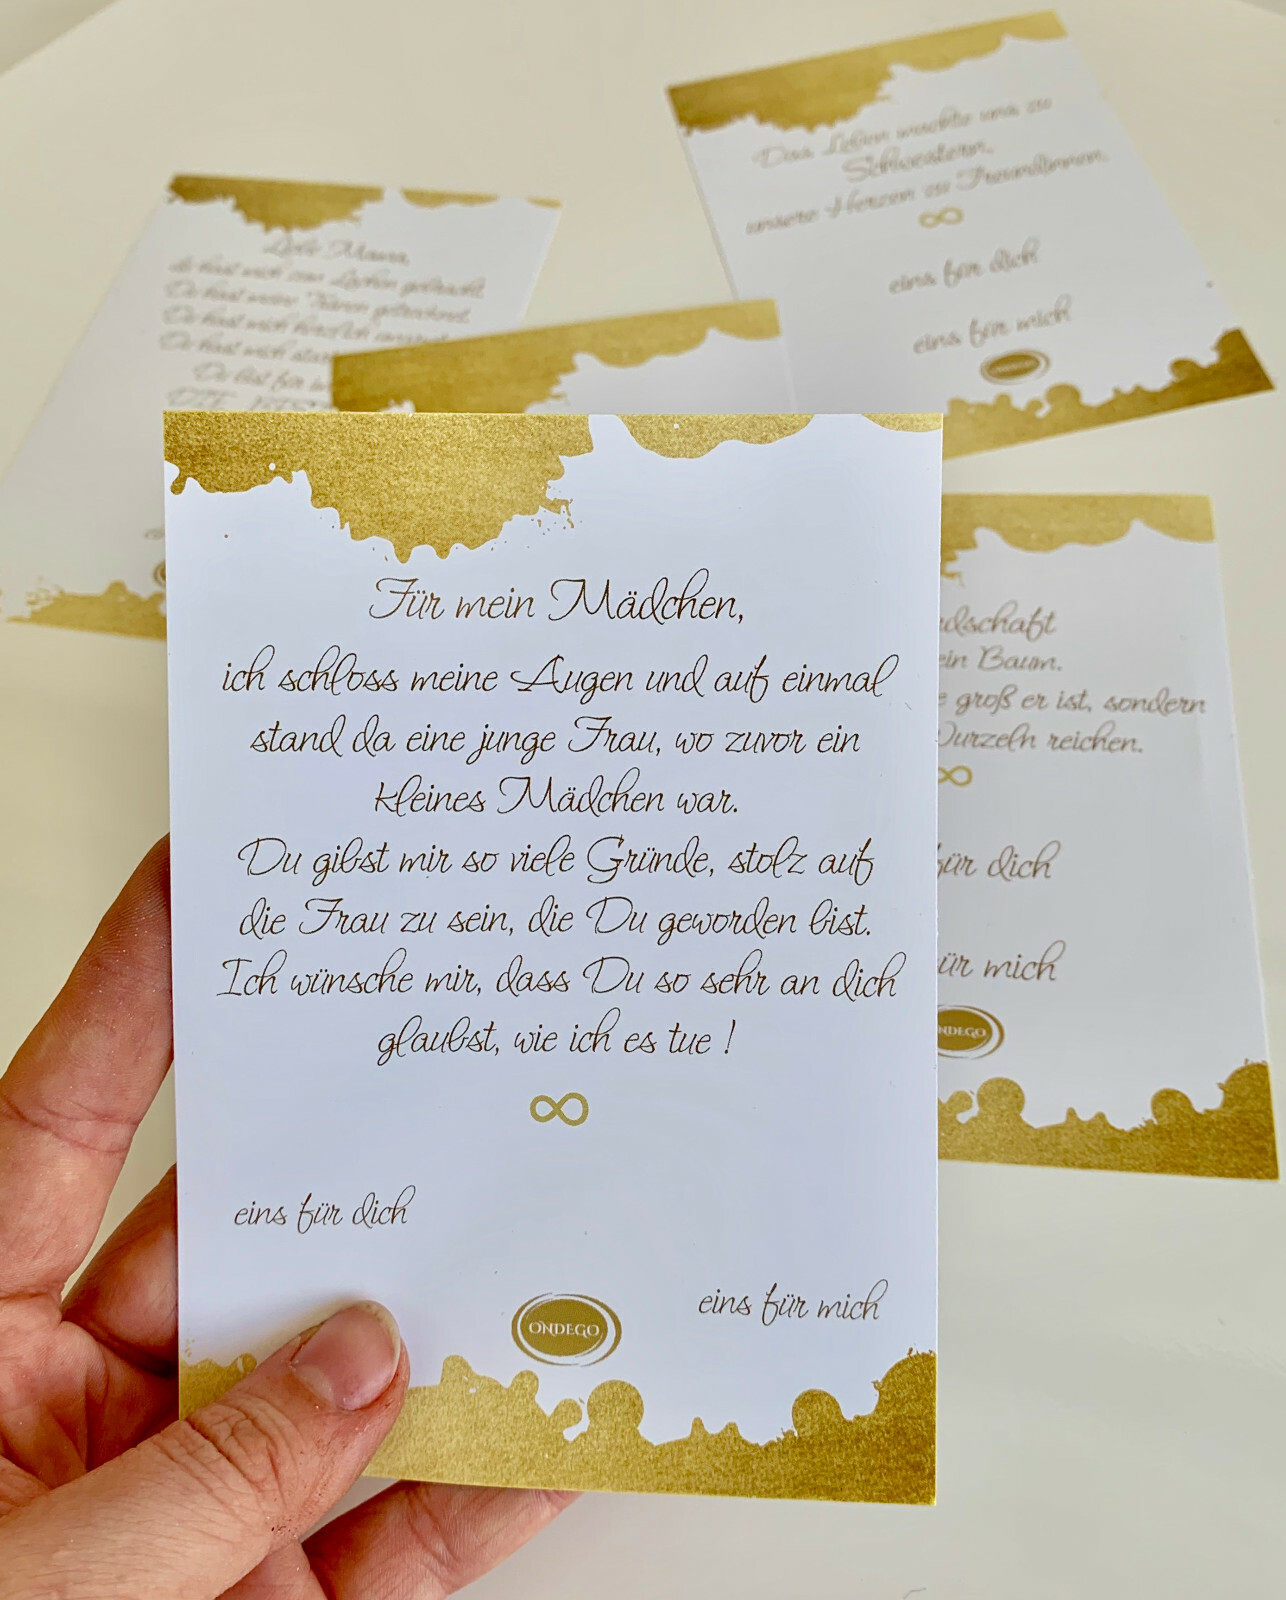 Das Leben machte uns zu
Schwestern,
unsere Herzen zu Freundinnen.
eins für dich
eins für mich
ONDEGO
Liebe Mama,
du hast mich zum Lachen gebracht.
Du hast meine Tränen getrocknet.
Du hast mich herzlich
Du hast mich
Du bist für
Für mein Mädchen,
ich schloss meine Augen und auf einmal
stand da eine junge Frau, wo zuvor ein
kleines Mädchen war.
Du gibst mir so viele Gründe, stolz auf
die Frau zu sein, die Du geworden bist.
Ich wünsche mir, dass Du so sehr an dich
glaubst, wie ich es tue !
eins für dich
eins für mich
ONDEGO
dschaft
ein Baum.
e groß er ist, sondern
Wurzeln reichen.
für dich
für mich
ONDEGO